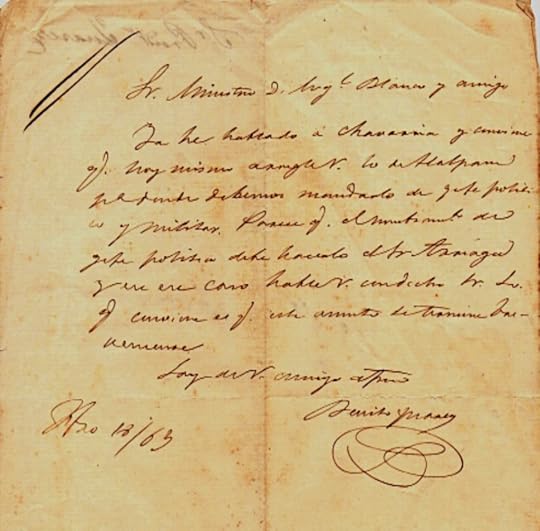 Sr. Ministro D. Mig.l Blanco y amigo
Ya he hablado á Chavarria y conviene
q.e hoy mismo arregle V. lo de Tlalpam
p.a donde debemos mandarlo de gefe politi-
co y militar. Parece q.e el nombram.to de
gefe politico debe hacerlo el Sr.
y en ese caso hable V. con dicho Sr. Lo
q.e conviene es q.e este asunto se termine
Soy de V. amigo
Benito Juarez
13/63